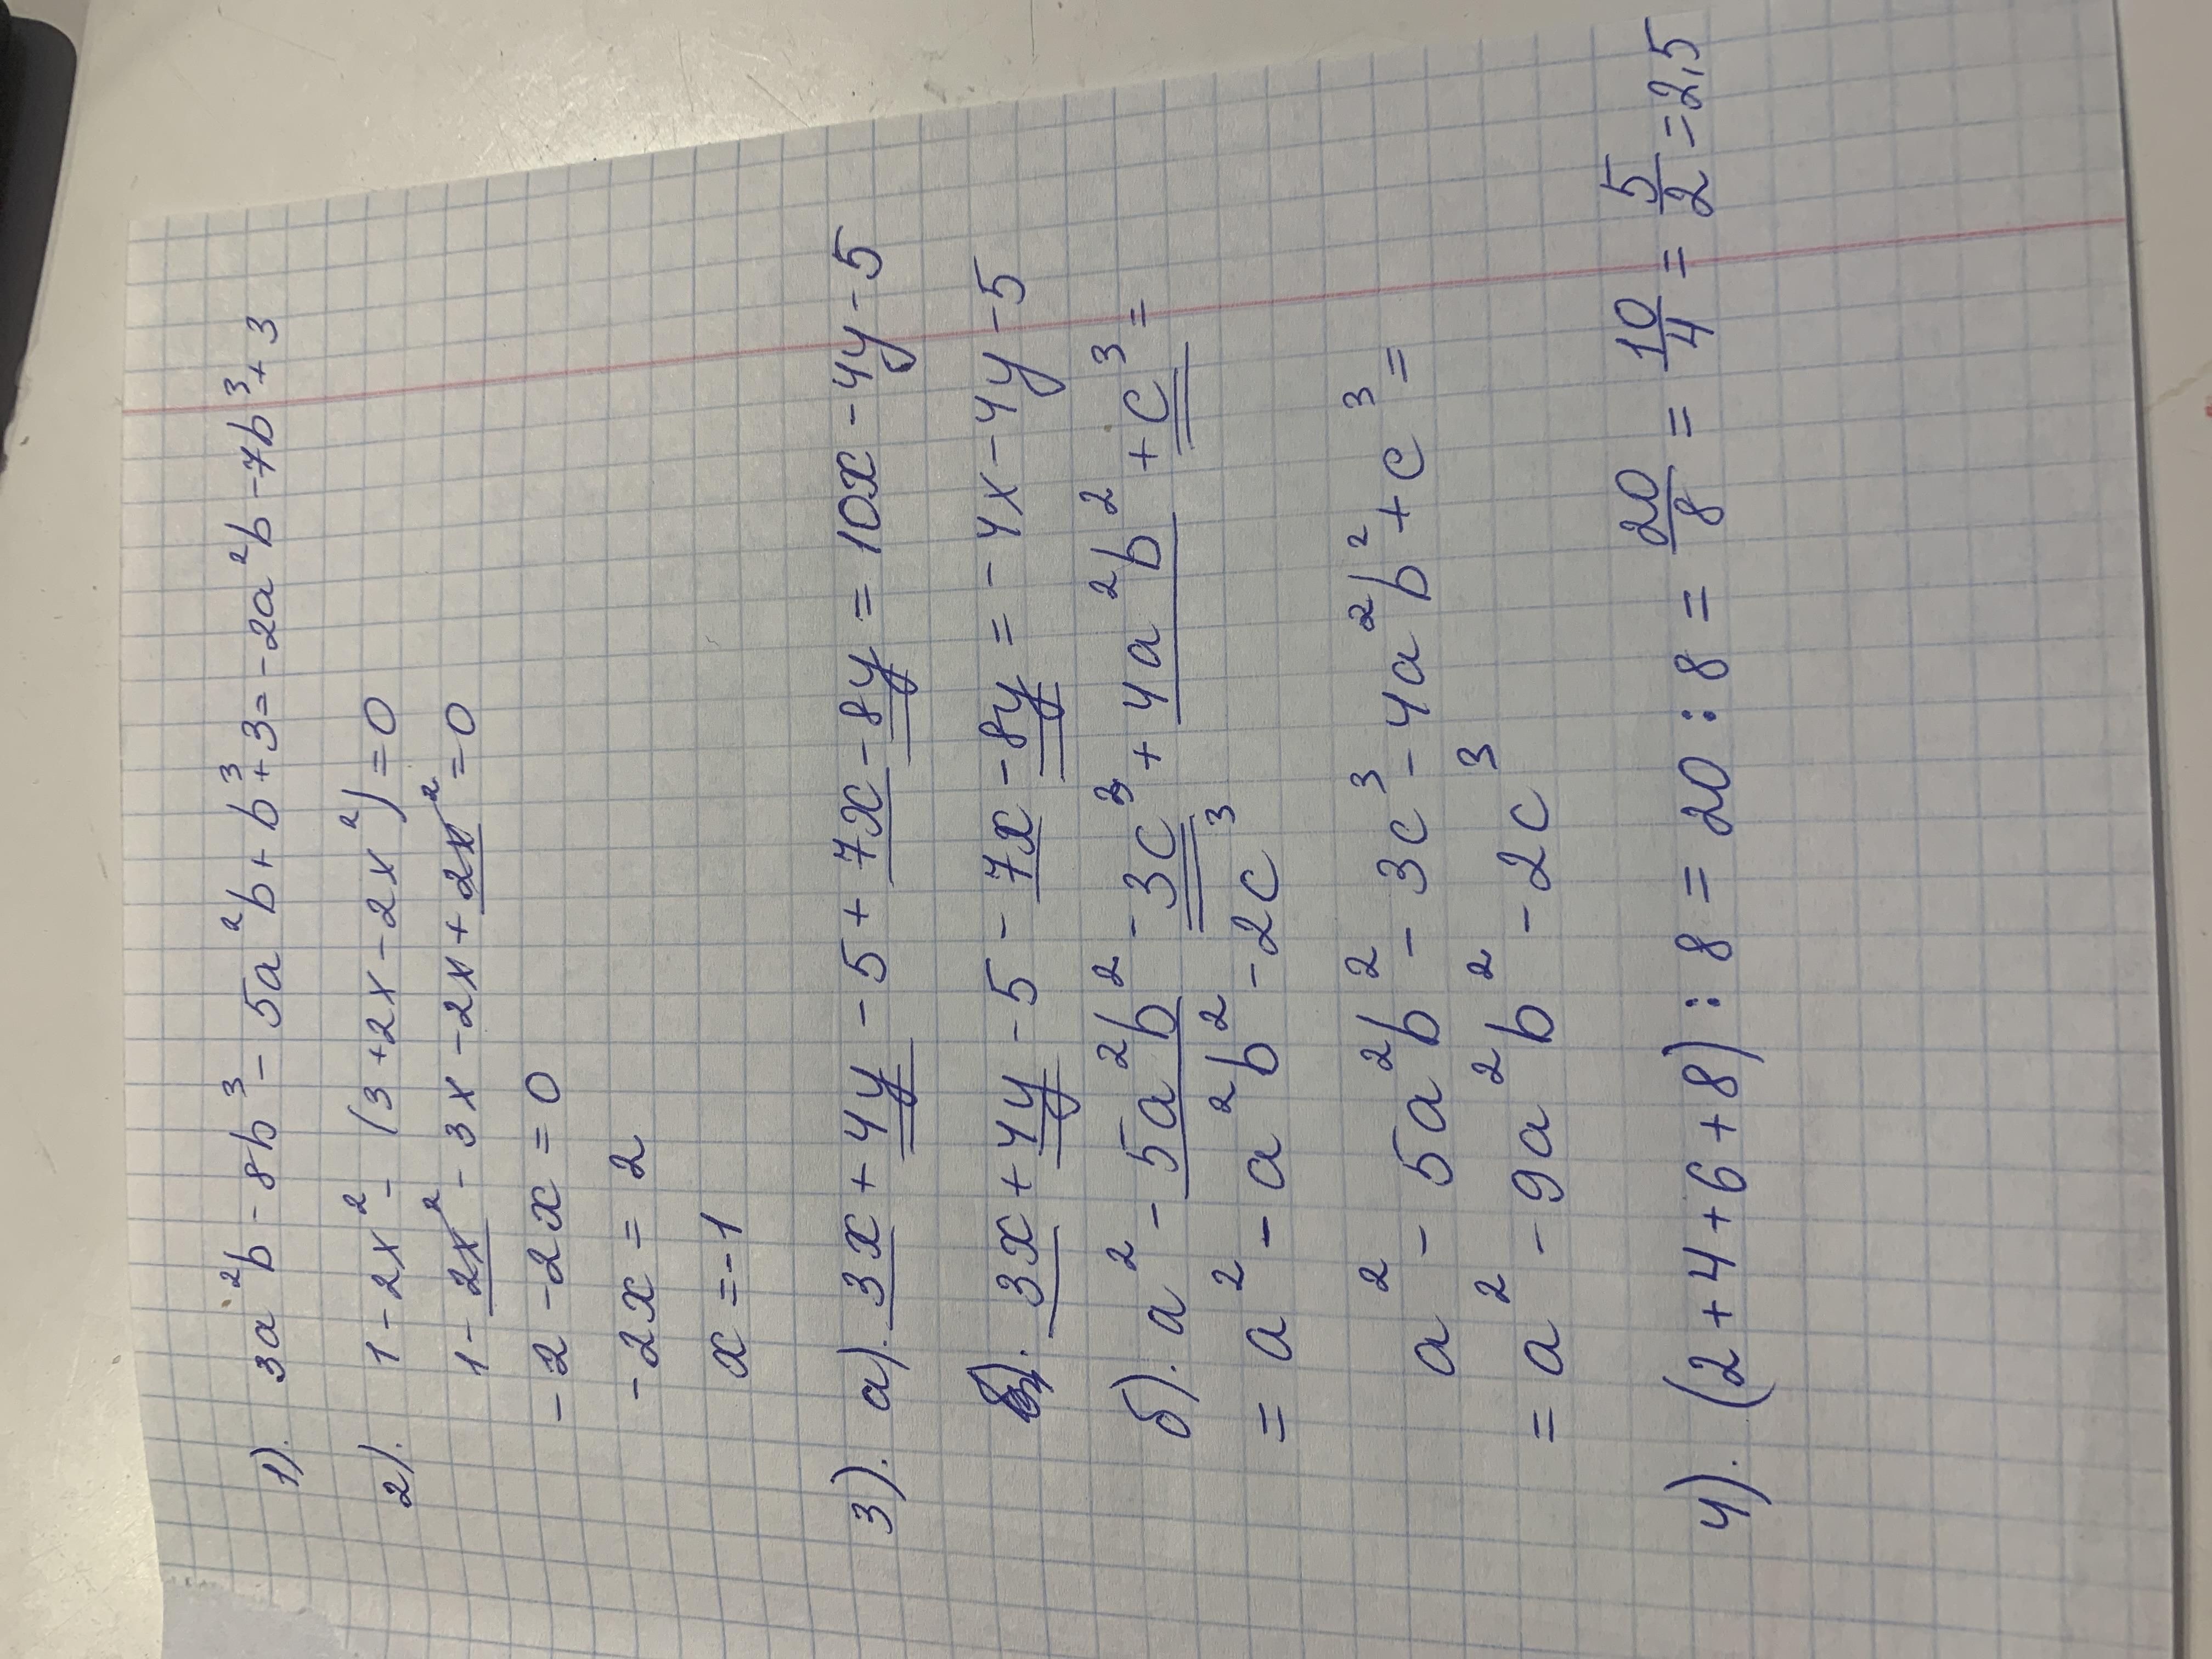 1). 3a²b - 8b³ - 5a²b + b³ + 3 = -2a²b - 7b³ + 3
2). 1 - 2x² - (3 + 2x - 2x²) = 0
1 - 2x² - 3x - 2x + 2x² = 0
-2 - 2x = 0
-2x = 2
x = -1
3). а). 3x + 4y - 5 + 7x - 8y = 10x - 4y - 5
3x + 4y - 5 - 7x - 8y = -4x - 4y - 5
б). a² - 5a²b² - 3c³ + 4a²b² + c³ =
= a² - a²b² - 2c³
a² - 5a²b² - 3c³ - 4a²b² + c³ =
= a² - 9a²b² - 2c³
4). (2 + 4 + 6 + 8) : 8 = 20 : 8 = 20/8 = 10/4 = 5/2 = 2,5